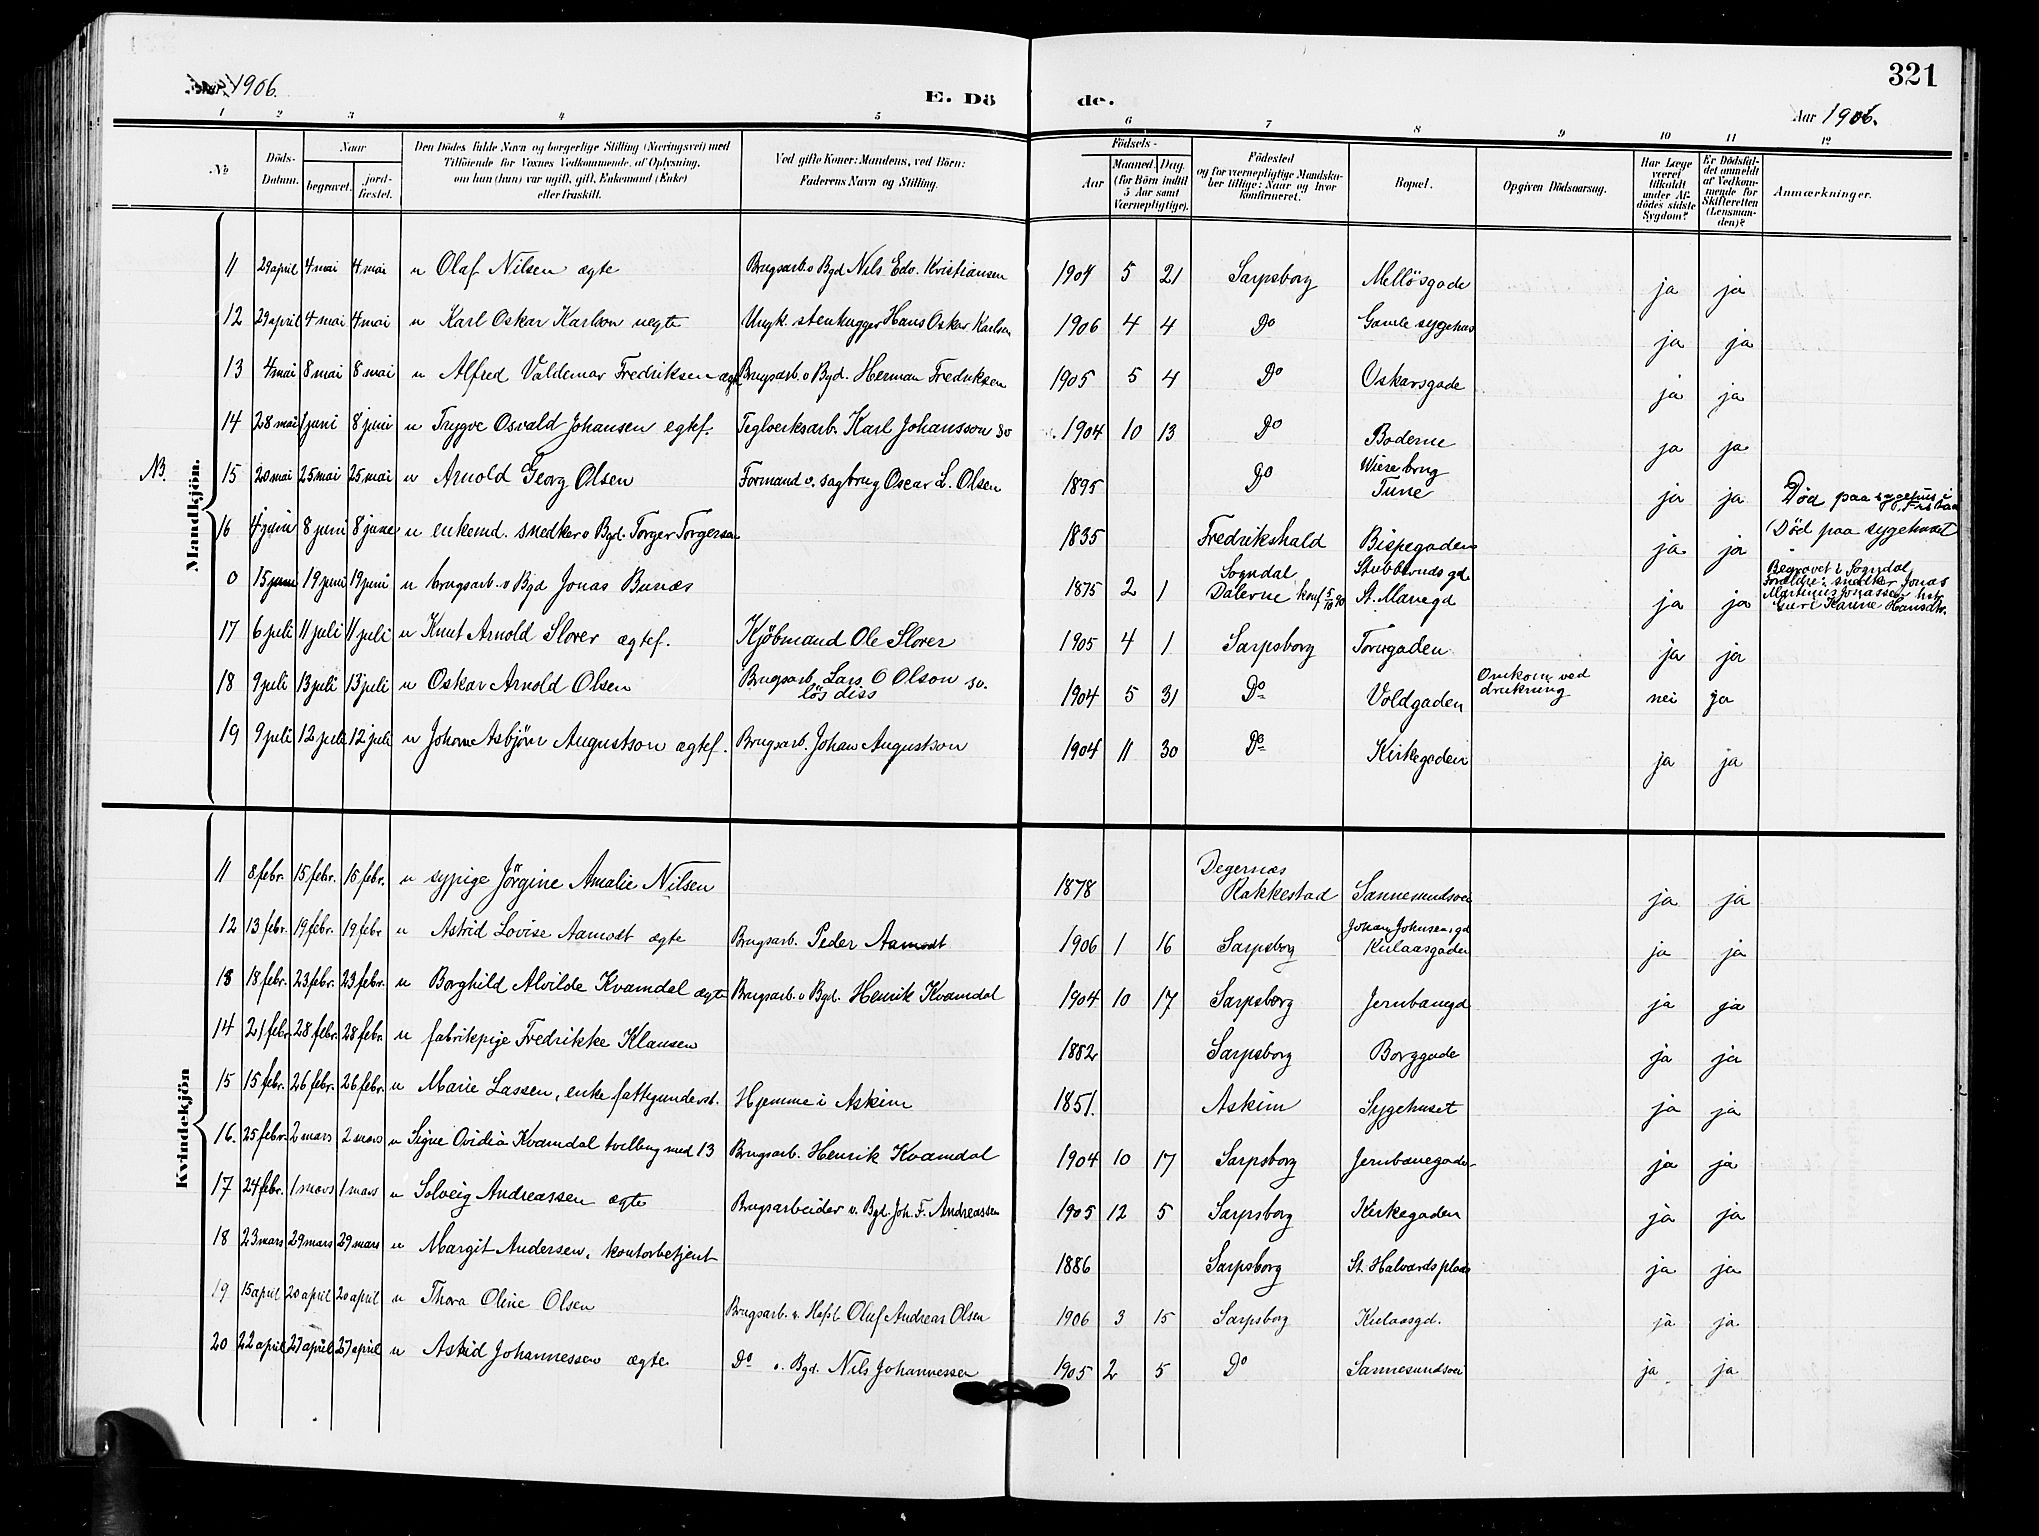 321
1906.
E. Dö de.
Aar 1906.
1 2 3 4 5 6 7 8 9 10 11 12
No
Döds-Datum.
Naar
begravet.
jord-fæstet.
Den Dödes fulde Navn og borgerlige Stilling (Næringsvei) med
Tilföiende for Voxnes Vedkommende, af Oplysning,
om han (hun) var ugift, gift, Enkemand (Enke)
eller fraskilt.
Ved gifte Koner: Mandens, ved Börn:
Faderens Navn og Stilling.
Födsels-
Aar
Maaned. Dag.
(for Börn indtil
5 Aar samt
Værnepligtige).
Födested
og for værnepligtige Mandska-
ber tillige: Naar og hvor
konfirmeret.
Bopæl.
Opgiven Dödsaarsag.
Har Læge
været
tilkaldt
under Af-
dödes sidste
Sygdom?
Er Dödsfal-
det anmeldt
af Vedkom-
mende for
Skifteretten
(Lensman-
den)?
Anmærkninger.
Mandkjön.
11 29 april 4 mai 4 mai u Olaf Nilsen ægte Brugsarb. o Bgd Nils Edv. Kristiansen 1904 5 21 Sarpsborg Mellösgade ja ja
12 29 april 4 mai 4 mai u Karl Oskar Karlson uegte Ungk. stenhugger Hans Oskar Karlsen 1906 4 4 Do Gamle sygehus ja ja
13 4 mai 8 mai 8 mai u Alfred Valdemar Fredriksen ægt Brugsarb. o Bgd. Herman Fredriksen 1905 5 4 Do Oskarsgade ja ja
14 28 mai 1 juni 8 juni u Trygve Osvald Johansen egtef. Teglverksarb. Karl Johansson so 1904 10 13 Do Boderne ja ja
NB. 15 20 mai 25 mai 25 mai u Arnold Georg Olsen Formand v. sagbrug Oscar L. Olsen 1895 Do Wiese brug Tune ja ja Död paa sygehus i Fr.stad
16 4 juni 8 juni 8 june u enkemd. snedker o Bgd. Torger Torgersen 1835 Fredrikshald Bispegaden ja ja (Död paa sygehuset
0 15 juni 19 juni 19 juni u brugsarb. o Bgd Jonas Bunæs 1875 2 1 Sogndal Dalerne konf 5/10 90 Stubberuds gd St. Mariegd ja ja Begravet i Sogndal Forældre: snedker Jonas Martinius Jonassen hst Guri Karine Hansdtr.
17 6 juli 11 juli 11 juli u Knut Arnold Slorer ægtef. Kjöbmand Ole Slorer 1905 4 1 Sarpsborg Torvgaden ja ja
18 9 juli 13 juli 13 juli u Oskar Arnold Olsen Brugsarb. Lars O Olson so. lös diss 1904 5 31 Do Voldgaden Omkom ved drukning nei ja
19 9 juli 12 juli 12 juli u Johan Asbjörn Augustson ægtef. Brugsarb. Johan Augustson 1904 11 30 Do Kirkegaden ja ja
Kvindekjön
11 8 febr. 15 febr. 15 febr. u sypige Jörgine Amalie Nilsen 1878 Degernæs Rakkestad Sannesundsvei ja ja
12 13 febr. 19 febr. 19 febr u Astrid Lovise Aamodt ægte Brugsarb. Peder Aamodt 1906 1 16 Sarpsborg Johan Johnsens gd Kulaasgaden ja ja
13 18 febr. 23 febr. 23 febr. u Borghild Alvilde Kvamdal ægte Brugsarb. o Bgd. Henrik Kvamdal 1904 10 17 Sarpsborg Jernbanegd ja ja
14 21 febr 28 febr. 28 febr. u fabrikpige Fredrikke Klausen 1882 Sarpsborg Borggade ja ja
15 15 febr. 26 febr. 26 febr. u Marie Lassen, enke fattigunderst. Hjemme i Askim 1851. Askim Sygehuset ja ja
16. 25 febr. 2 mars 2 mars u Signe Ovidia Kvamdal tvilling med 13 Brugsarb. Henrik Kvamdal 1904 10 17 Sarpsborg Jernbanegade ja ja
17 24 febr. 1 mars 1 mars u Solveig Andreassen ægte Brugsarbeider o. Bgd. Joh. F. Andreassen 1905 12 5 Sarpsborg Kirkegaden ja ja
18 23 mars 29 mars 29 mars u Margit Andersen, kontorbetjent 1886 Sarpsborg St. Halvards plads ja ja
19 15 april 20 april 20 april u Thora Oline Olsen Brugsarb. Olaf Andreas Olsen 1906 3 15 Sarpsborg Kulaasgd. ja ja
20 22 april 27 april 27 april u Astrid Johannessen ægte Do o. Bgd. Nils Johannessen 1905 2 5 Do Sannesundsvei ja ja